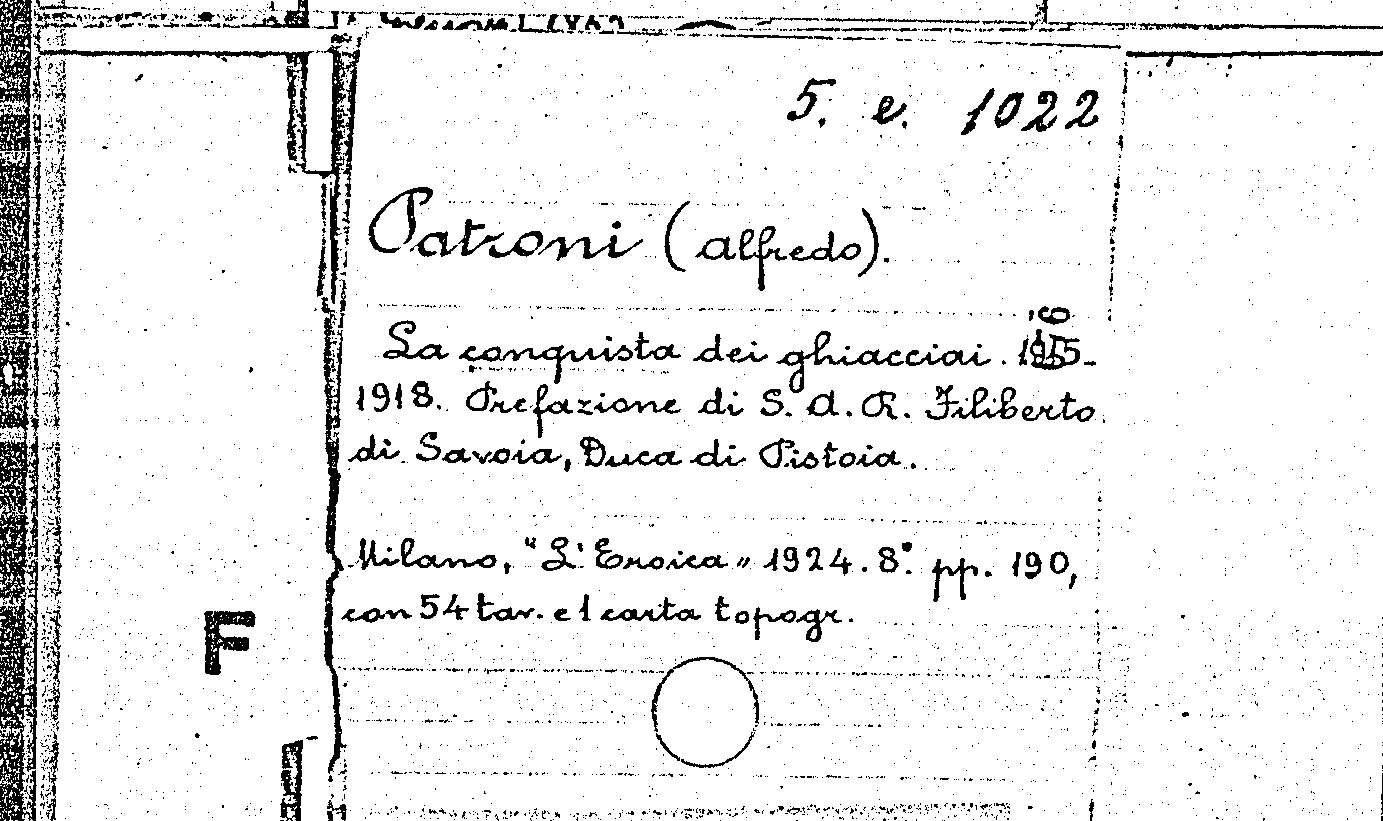 5. e. 1022
Patroni (Alfredo).
La conquista dei ghiacciai. 1915-
1918. Prefazione di S. A. R. Filiberto
di Savoia, Duca di Pistoia.
Milano, "L'Eroica" 1924. 8.° pp. 190,
con 54 tav. e 1 carta topogr.
F